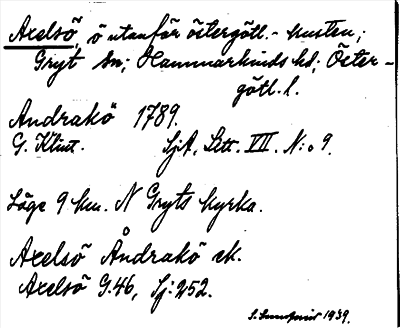 Axelsö, ö utanför östergötl.-kusten;
Gryt sn; Hammarkinds hd; Öster-
götl. l.
Andrakö 1789.
G. Klint. SjA, Litt. VII. N:o 9.
Läge 9 km. N Gryts kyrka.
Axelsö Åndrakö ek.
Axelsö G.46, Sj: 252.
S. Sundqvist 1939.